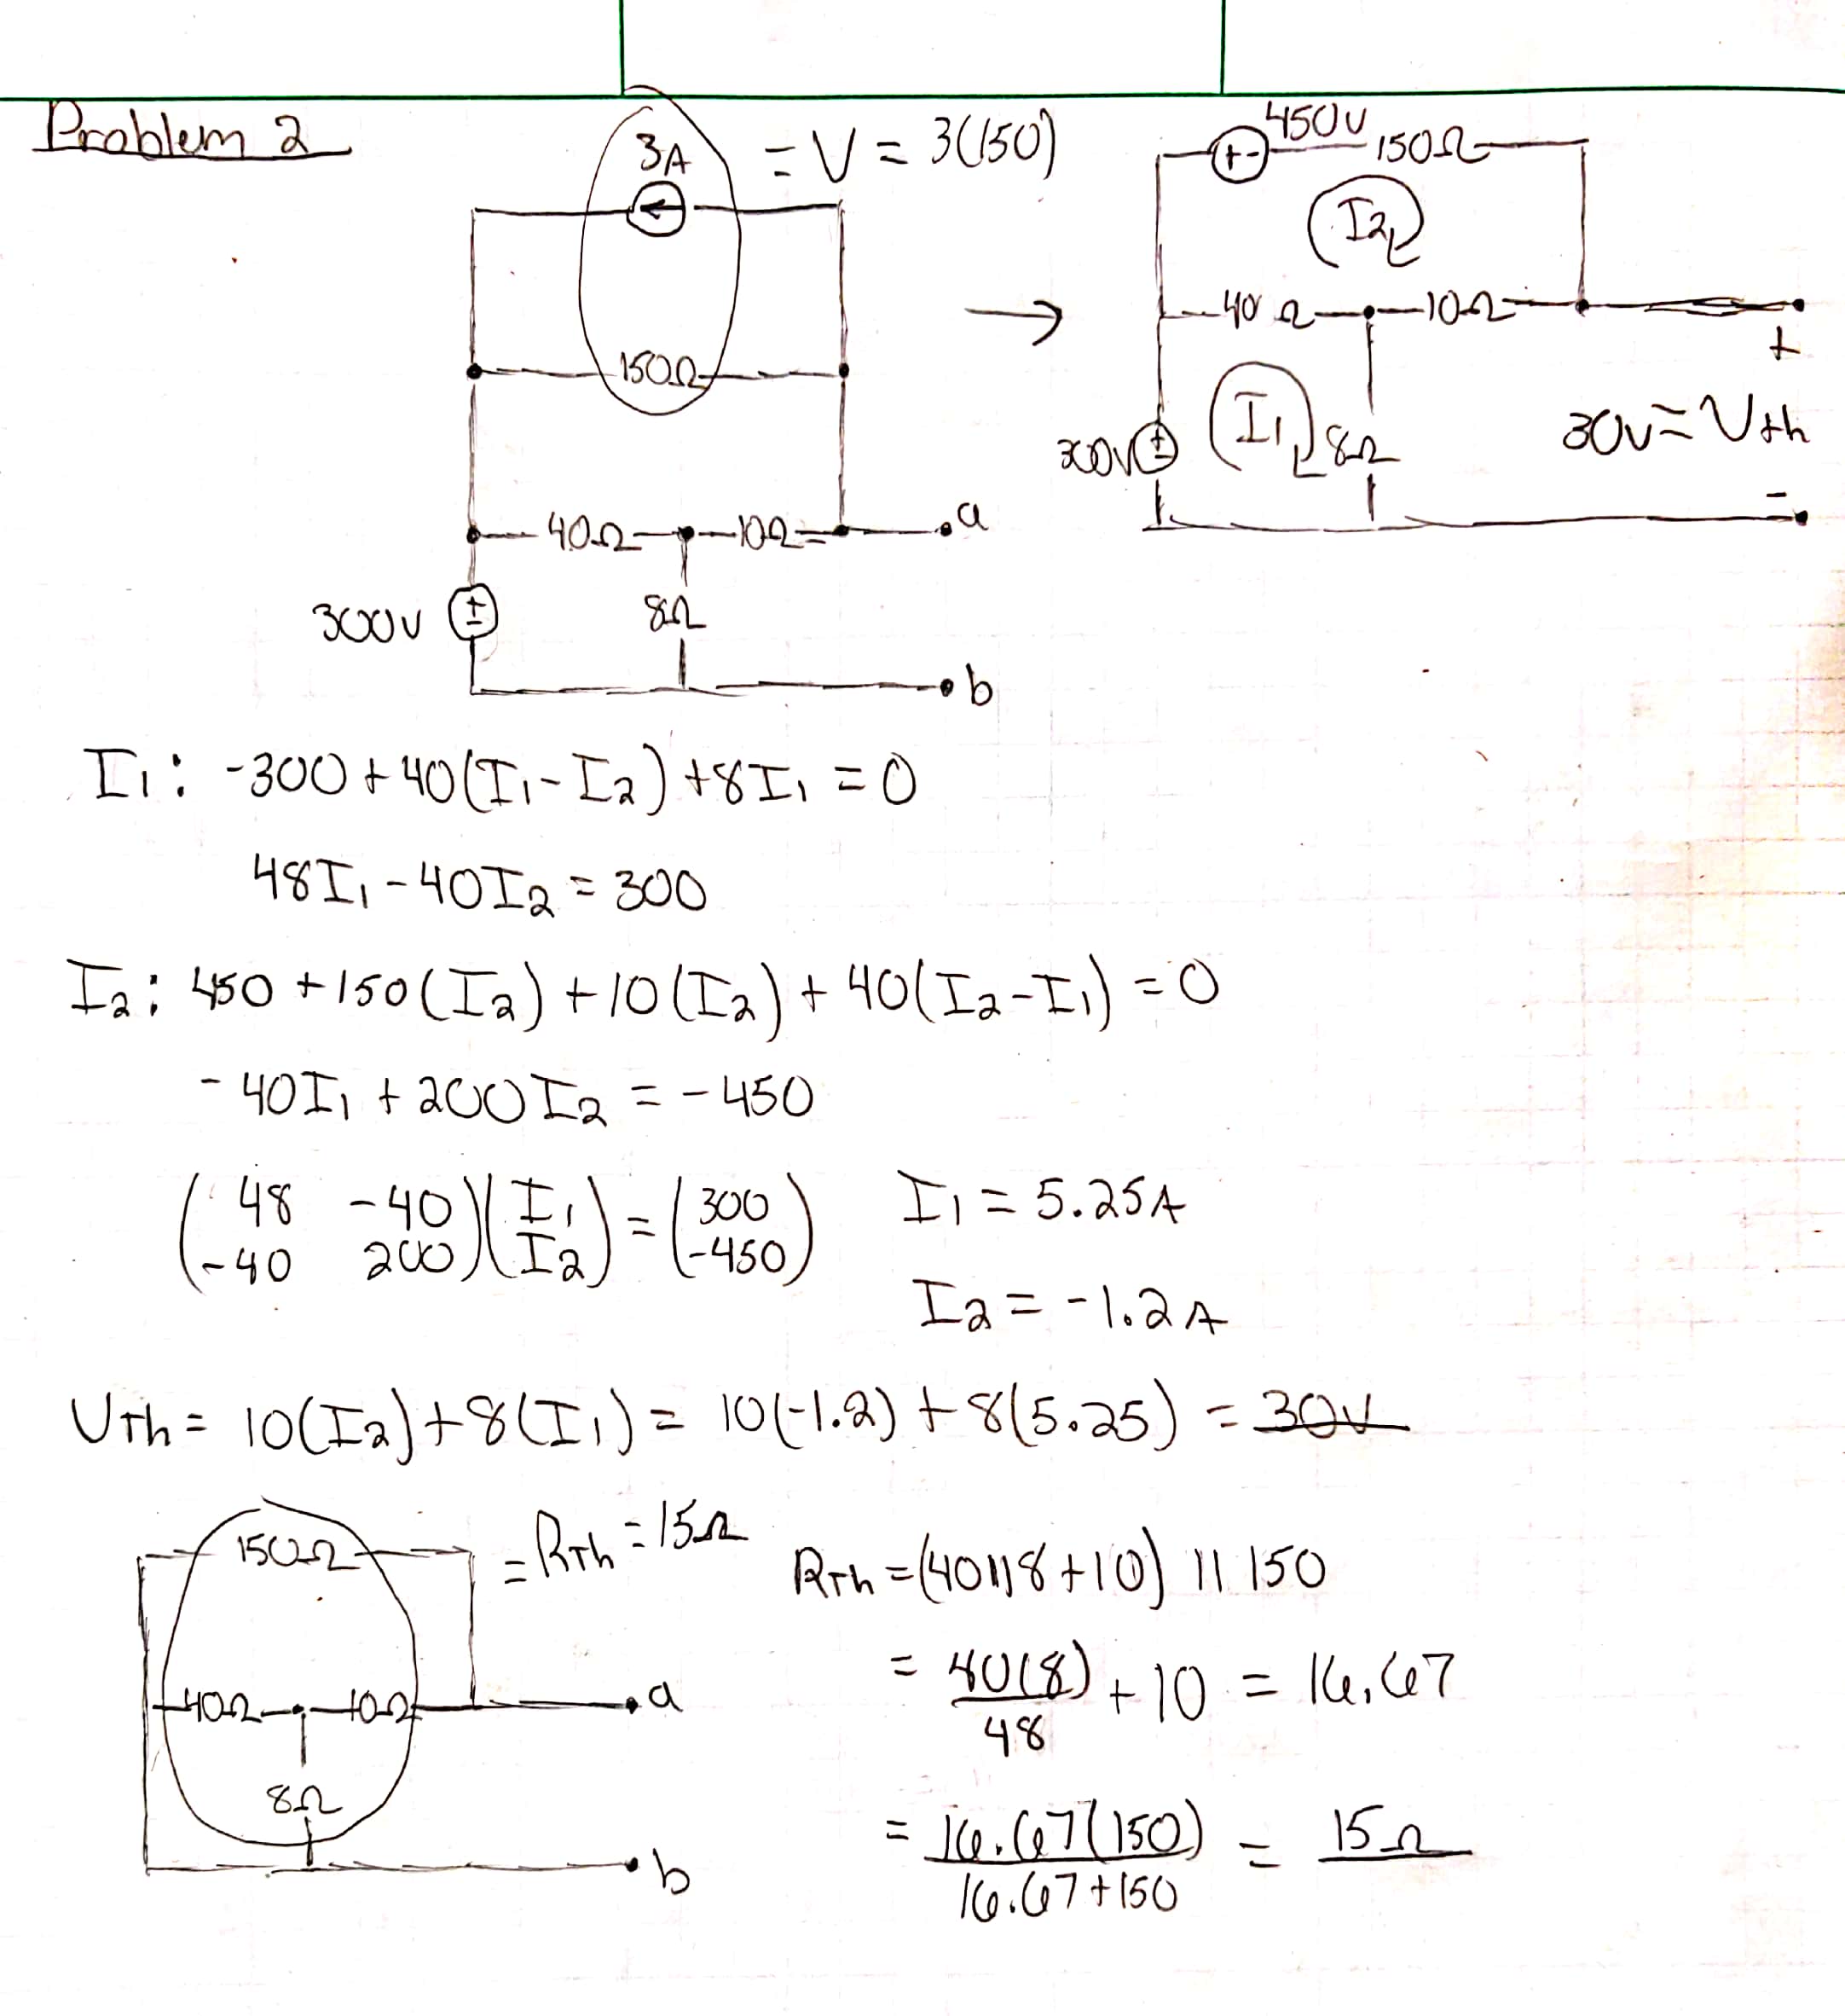 Problem 2
3A
= V = 3(150)
150Ω
40Ω
10Ω
a
300V
+
-
8Ω
b
→
450V
+ -
150Ω
I2
40Ω
10Ω
+
300V
+
-
I1
8Ω
30V = Vth
-
I1: -300 + 40(I1 - I2) + 8I1 = 0
48I1 - 40I2 = 300
I2: 450 + 150(I2) + 10(I2) + 40(I2 - I1) = 0
- 40I1 + 200I2 = - 450
(48 -40)(I1) = (300)
(-40 200)(I2) = (-450)
I1 = 5.25A
I2 = -1.2A
VTh = 10(I2) + 8(I1) = 10(-1.2) + 8(5.25) = 30V
150Ω
= RTh = 15Ω
40Ω
10Ω
a
8Ω
b
RTh = (40||8 + 10) || 150
= 40(8)/48 + 10 = 16.67
= 16.67(150)/16.67+150 = 15Ω